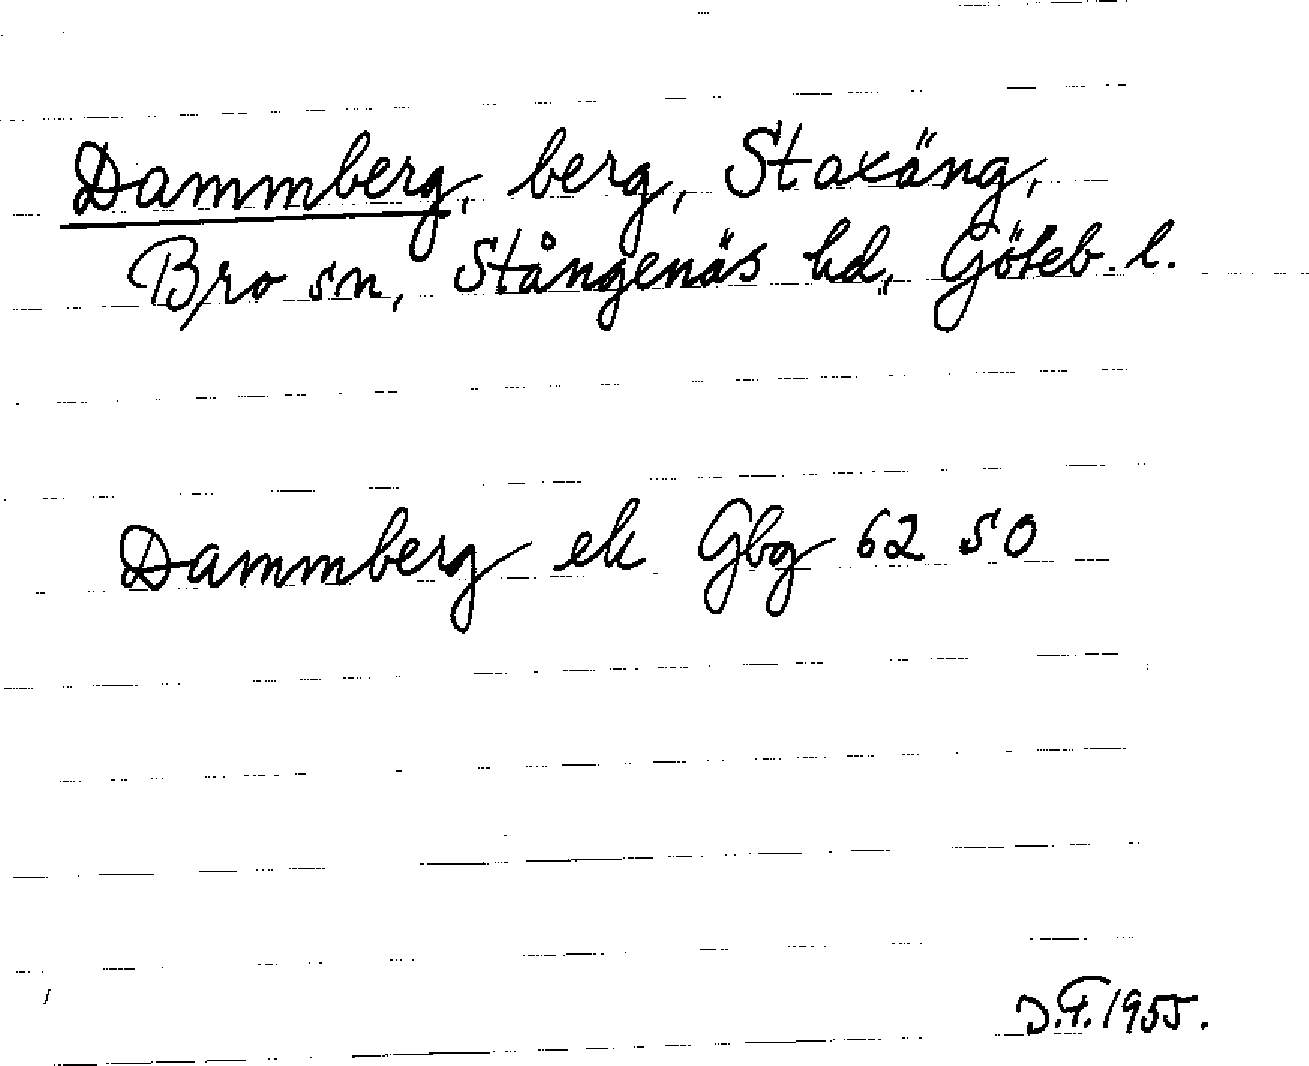 Dammberg, berg, Staxäng,
Bro sn, Stångenäs hd, Göteb. l.
Dammberg ek Gbg 62 SO
D.F. 1955.